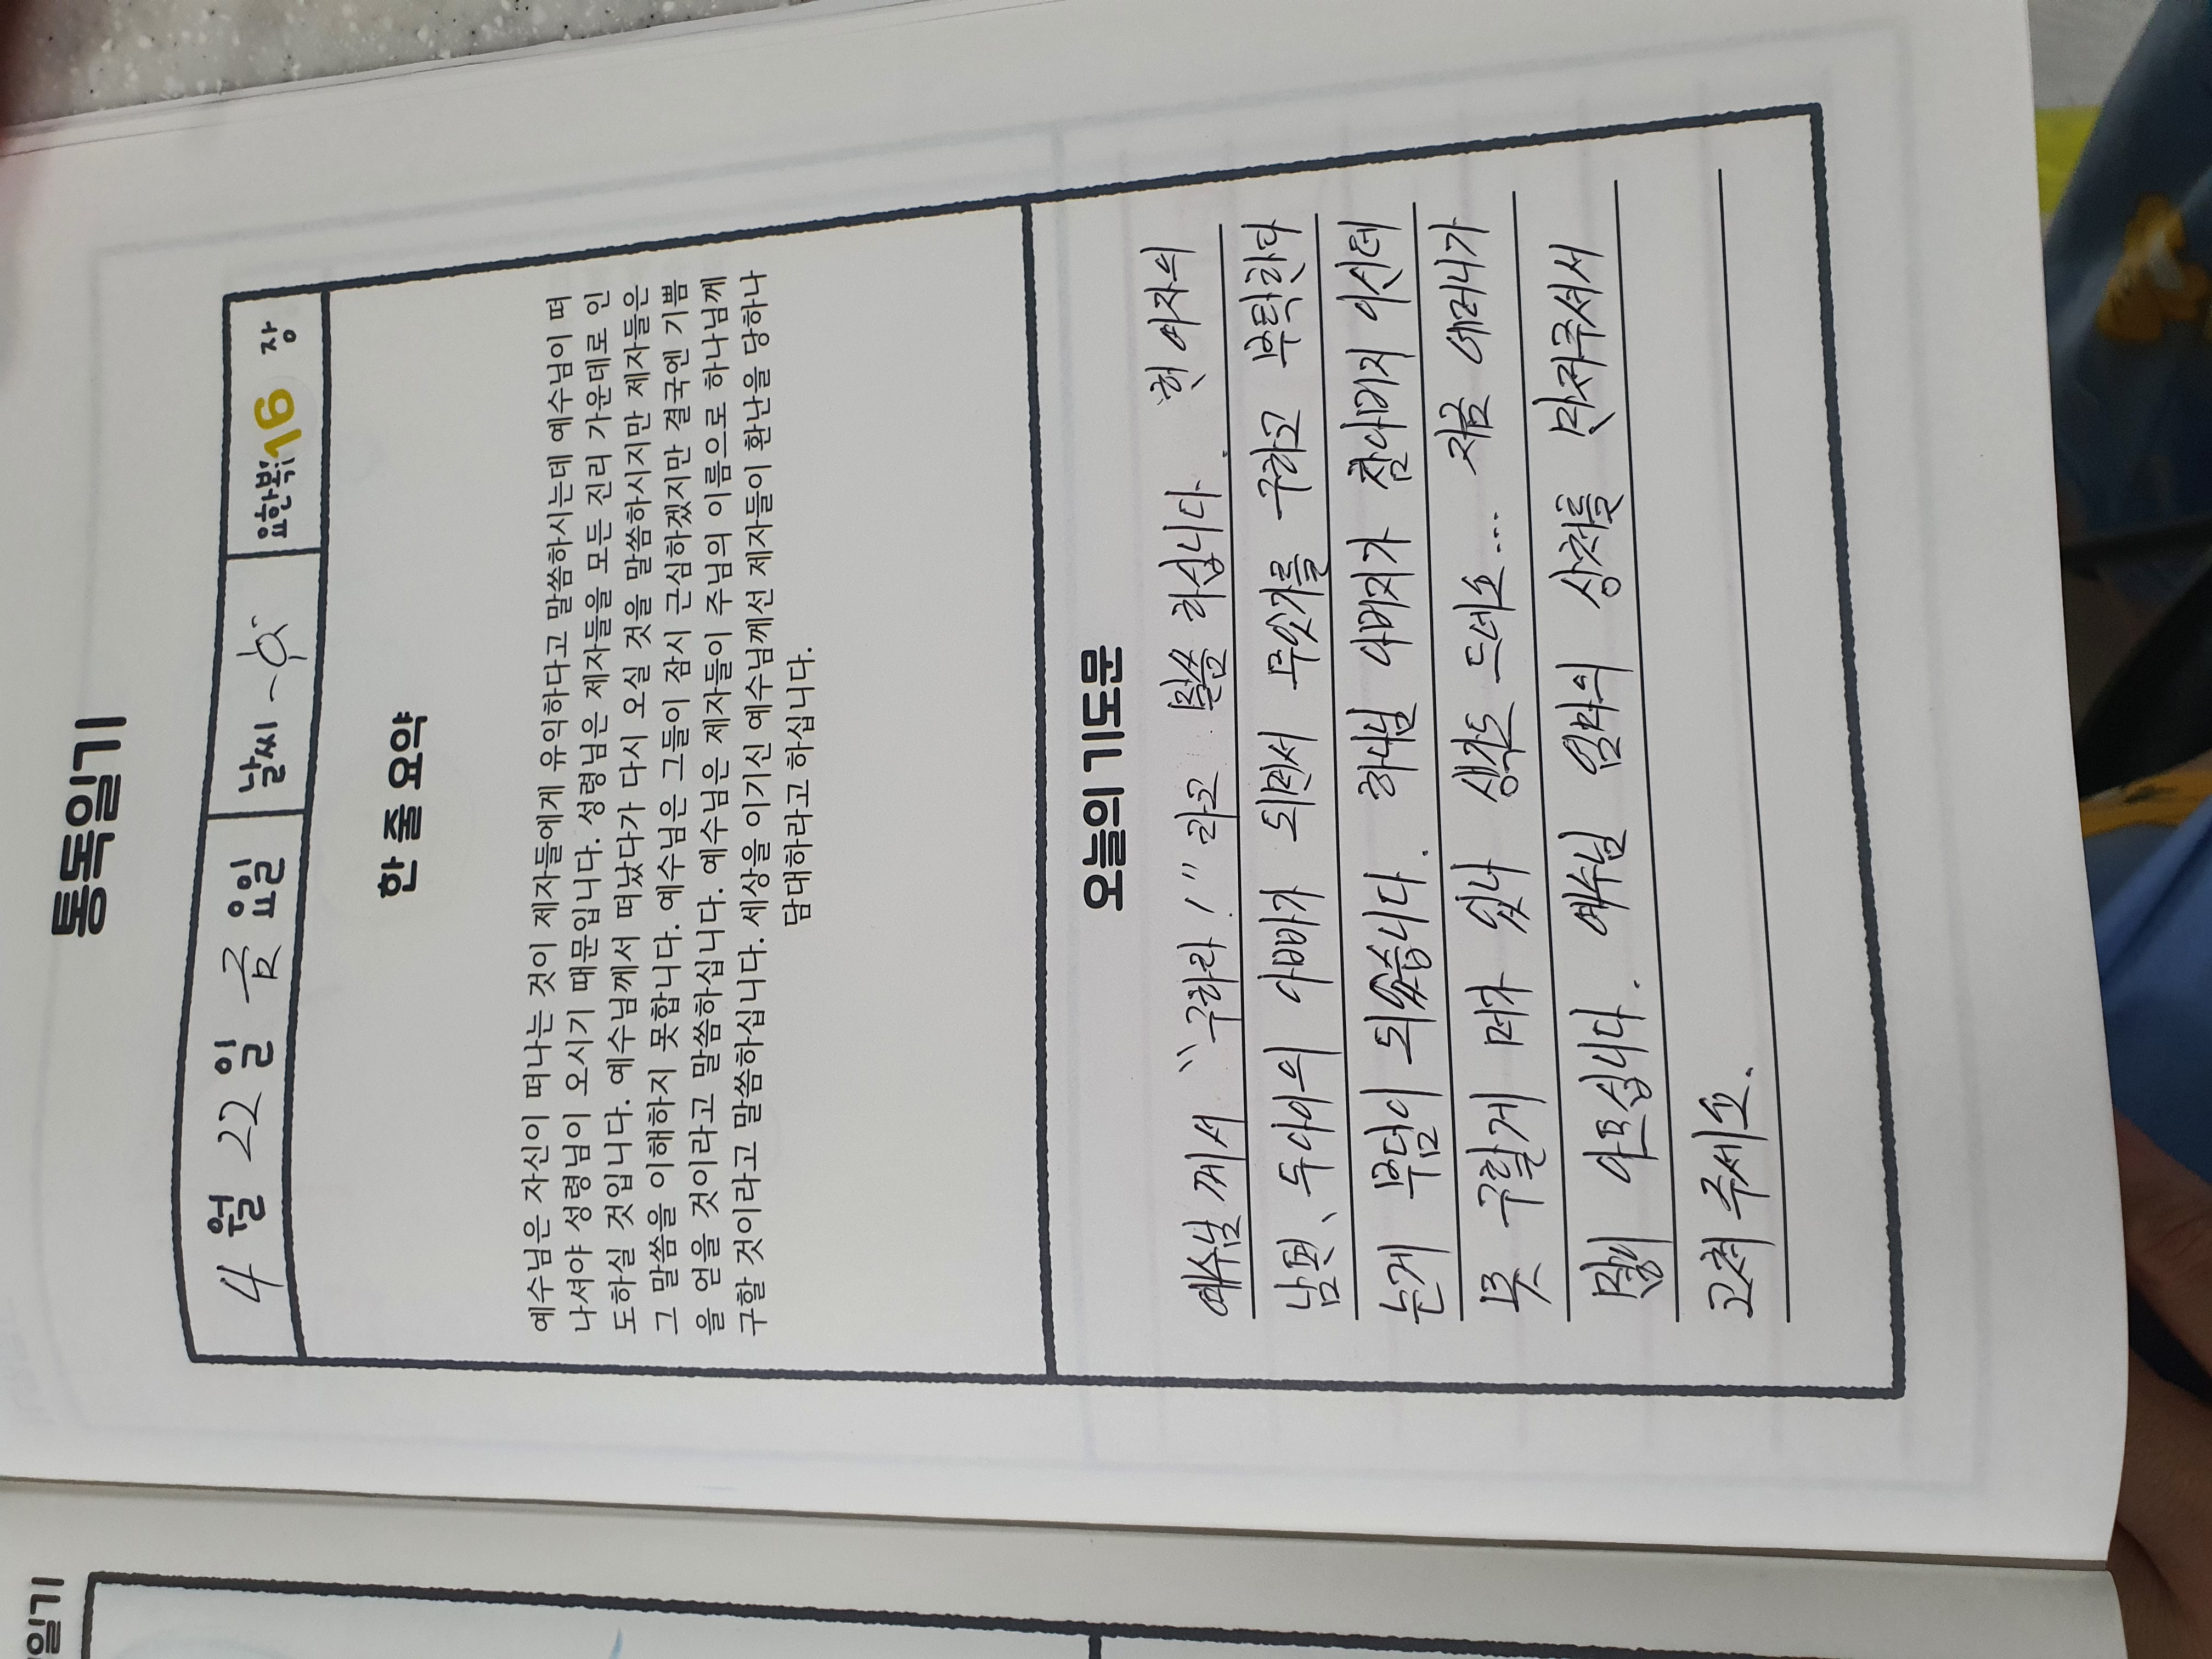 통독일기
4월 22일 금요일 날씨 요한복음 16 장
한 줄 요약
예수님은 자신이 떠나는 것이 제자들에게 유익하다고 말씀하시는데 예수님이 떠
나셔야 성령님이 오시기 때문입니다. 성령님은 제자들을 모든 진리 가운데로 인
도하실 것입니다. 예수님께서 떠났다가 다시 오실 것을 말씀하시지만 제자들은
그 말씀을 이해하지 못합니다. 예수님은 그들이 잠시 근심하겠지만 결국엔 기쁨
을 얻을 것이라고 말씀하십니다. 예수님은 제자들이 주님의 이름으로 하나님께
구할 것이라고 말씀하십니다. 세상을 이기신 예수님께선 제자들이 환난을 당하나
담대하라고 하십니다.
오늘의 기도문
예수님 께서 "구하라!" 라고 말씀 하십니다. 한 여자의
남편, 두아이의 아빠가 되면서 무엇가를 구하고 부탁한다
는게 부담이 되었습니다. 하나님 아버지가 참아버지 이신데
못 구할게 머가 있나 생각도 드네요... 지금 어머니가
많이 아프십니다. 예수님 엄마의 상처를 만져주셔서
고쳐 주세요.
일기